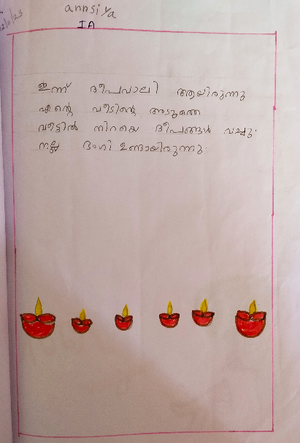 annsiya
IA
ഇന്ന് ദീപവാലി ആയിരുന്നു
എന്റെ വീടിന്റെ അടുത്തെ
വീട്ടിൽ നിറയെ ദീപങ്ങൾ വച്ചു.
നല്ല ഭംഗി ഉണ്ടായിരുന്നു.